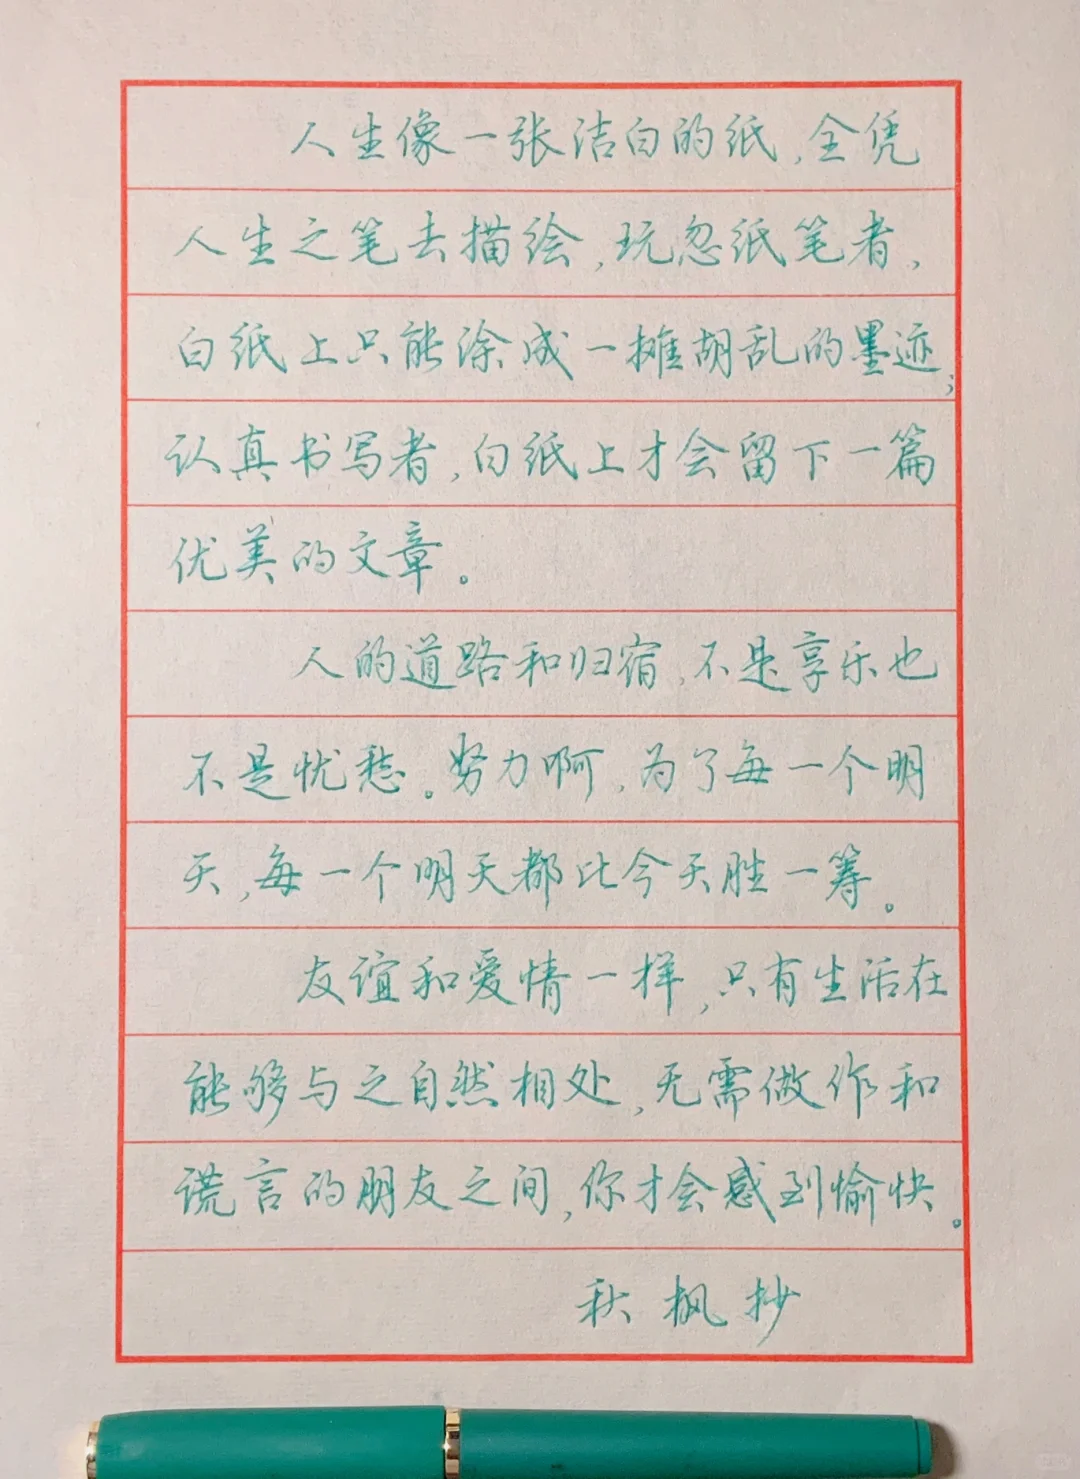 人生像一张洁白的纸,全凭
人生之笔去描绘,玩忽纸笔者,
白纸上只能涂成一摊胡乱的墨迹;
认真书写者,白纸上才会留下一篇
优美的文章。
人的道路和归宿,不是享乐也
不是忧愁。努力啊,为了每一个明
天,每一个明天都比今天胜一筹。
友谊和爱情一样,只有生活在
能够与之自然相处,无需做作和
谎言的朋友之间,你才会感到愉快。
秋枫抄